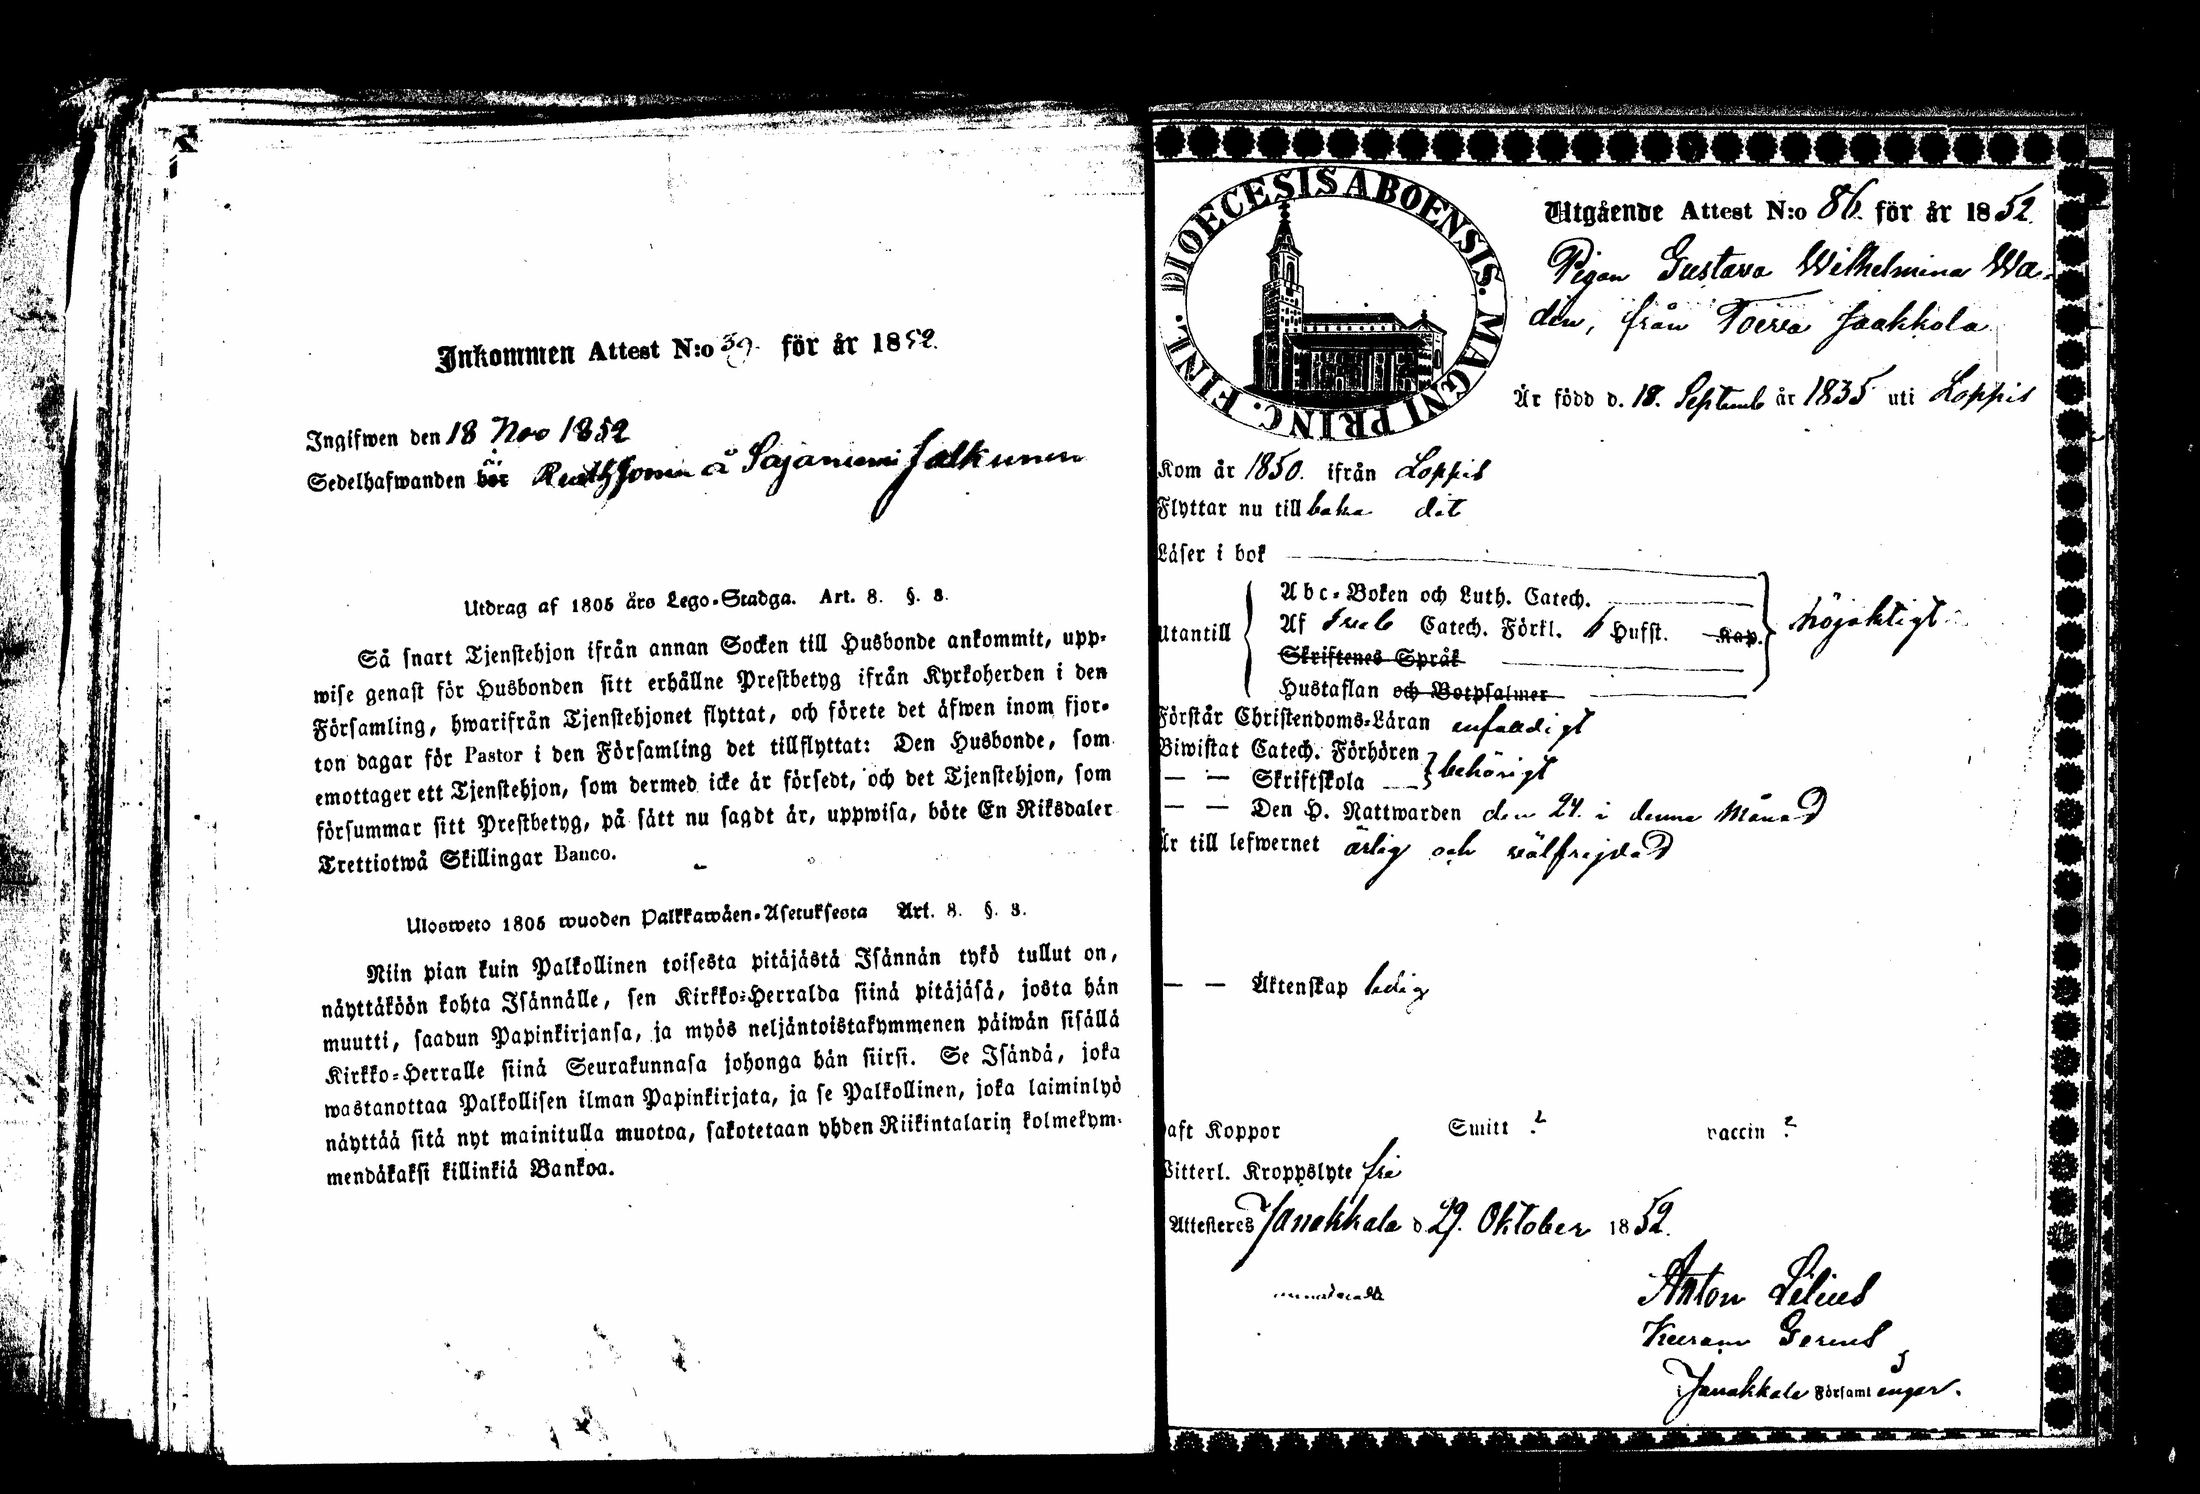 Inkommen Attest N:o 39. för år 1852.
Ingifwen den 18 Nov 1852
Sedelhafwanden bör är å Sajaniemi
Utdrag af 1805 års Lego-Stadga. Art. 8. §. 3.
Så snart Tjenstehjon ifrån annan Socken till Husbonde ankommit, upp-
wise genast för Husbonden sitt erhållne Prestbetyg ifrån Kyrkoherden i den
Församling, hwarifrån Tjenstehjonet flyttat, och förete det äfwen inom fjor-
ton dagar för Pastor i den Församling det tillflyttat: Den Husbonde, som
emottager ett Tjenstehjon, som dermed icke är försedt, och det Tjenstehjon, som
försummar sitt Prestbetyg, på sätt nu sagdt är, uppwisa, böte En Riksdaler
Trettiotwå Skillingar Banco.
Ulosweto 1805 wuoden Palkkawäen-Asetuksesta Art. 8. §. 3.
Niin pian kuin Palkollinen toisesta pitäjästä Isännän tykö tullut on,
näyttäköön kohta Isännälle, sen Kirkko-Herralda siinä pitäjäsä, josta hän
muutti, saadun Papinkirjansa, ja myös neljäntoistakymmenen päiwän sisällä
Kirkko-Herralle siinä Seurakunnasa johonga hän siirsi. Se Isändä, joka
wastanottaa Palkollisen ilman Papinkirjata, ja se Palkollinen, joka laiminlyö
näyttää sitä nyt mainitulla muotoa, sakotetaan yhden Riikintalarin kolmekym-
mendäkaksi killinkiä Bankoa.
DIOECESIS ABOENSIS. MAGNI PRINC. FINL.
Utgående Attest N:o 86. för år 1852.
Pigan Gustava Wilhelmina Wa-
dén, från Toivia Jaakkola
Är född d. 18. Septemb år 1835 uti Loppis
Kom år 1850. ifrån Loppis
Flyttar nu tillbaka dit
Läser i bok
Abc-Boken och Luth. Catech.
Utantill Af Sveb Catech. Förkl. Hufst. Kap. nöjaktigt
Skriftenes Språk
Hustaflan och Botpsalmer
Förstår Christendoms-Läran enfaldigt
Biwistat Catech. Förhören
— — Skriftskola behörigt
— — Den H. Nattwarden den 24. i denna Månad
Är till lefwernet ärlig och välfrejdad
— — Äktenskap ledig
Haft Koppor Smitt ? vaccin ?
Witterl. Kroppslyte fri
Attesteres Janakkala d. 29. Oktober 1852.
Anton Lilius
i Janakkala Församl ingar.